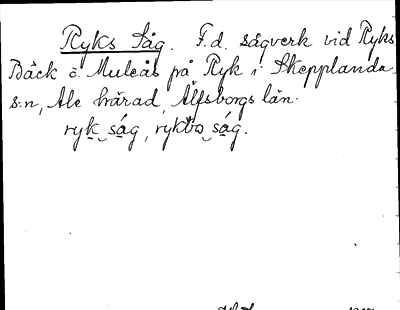 Ryks Såg. F.d. sågverk vid Ryks
Bäck ö. Muleås på Ryk i Skepplanda
s:n, Ale härad, Älfsborgs län.
ryk såg, såg.